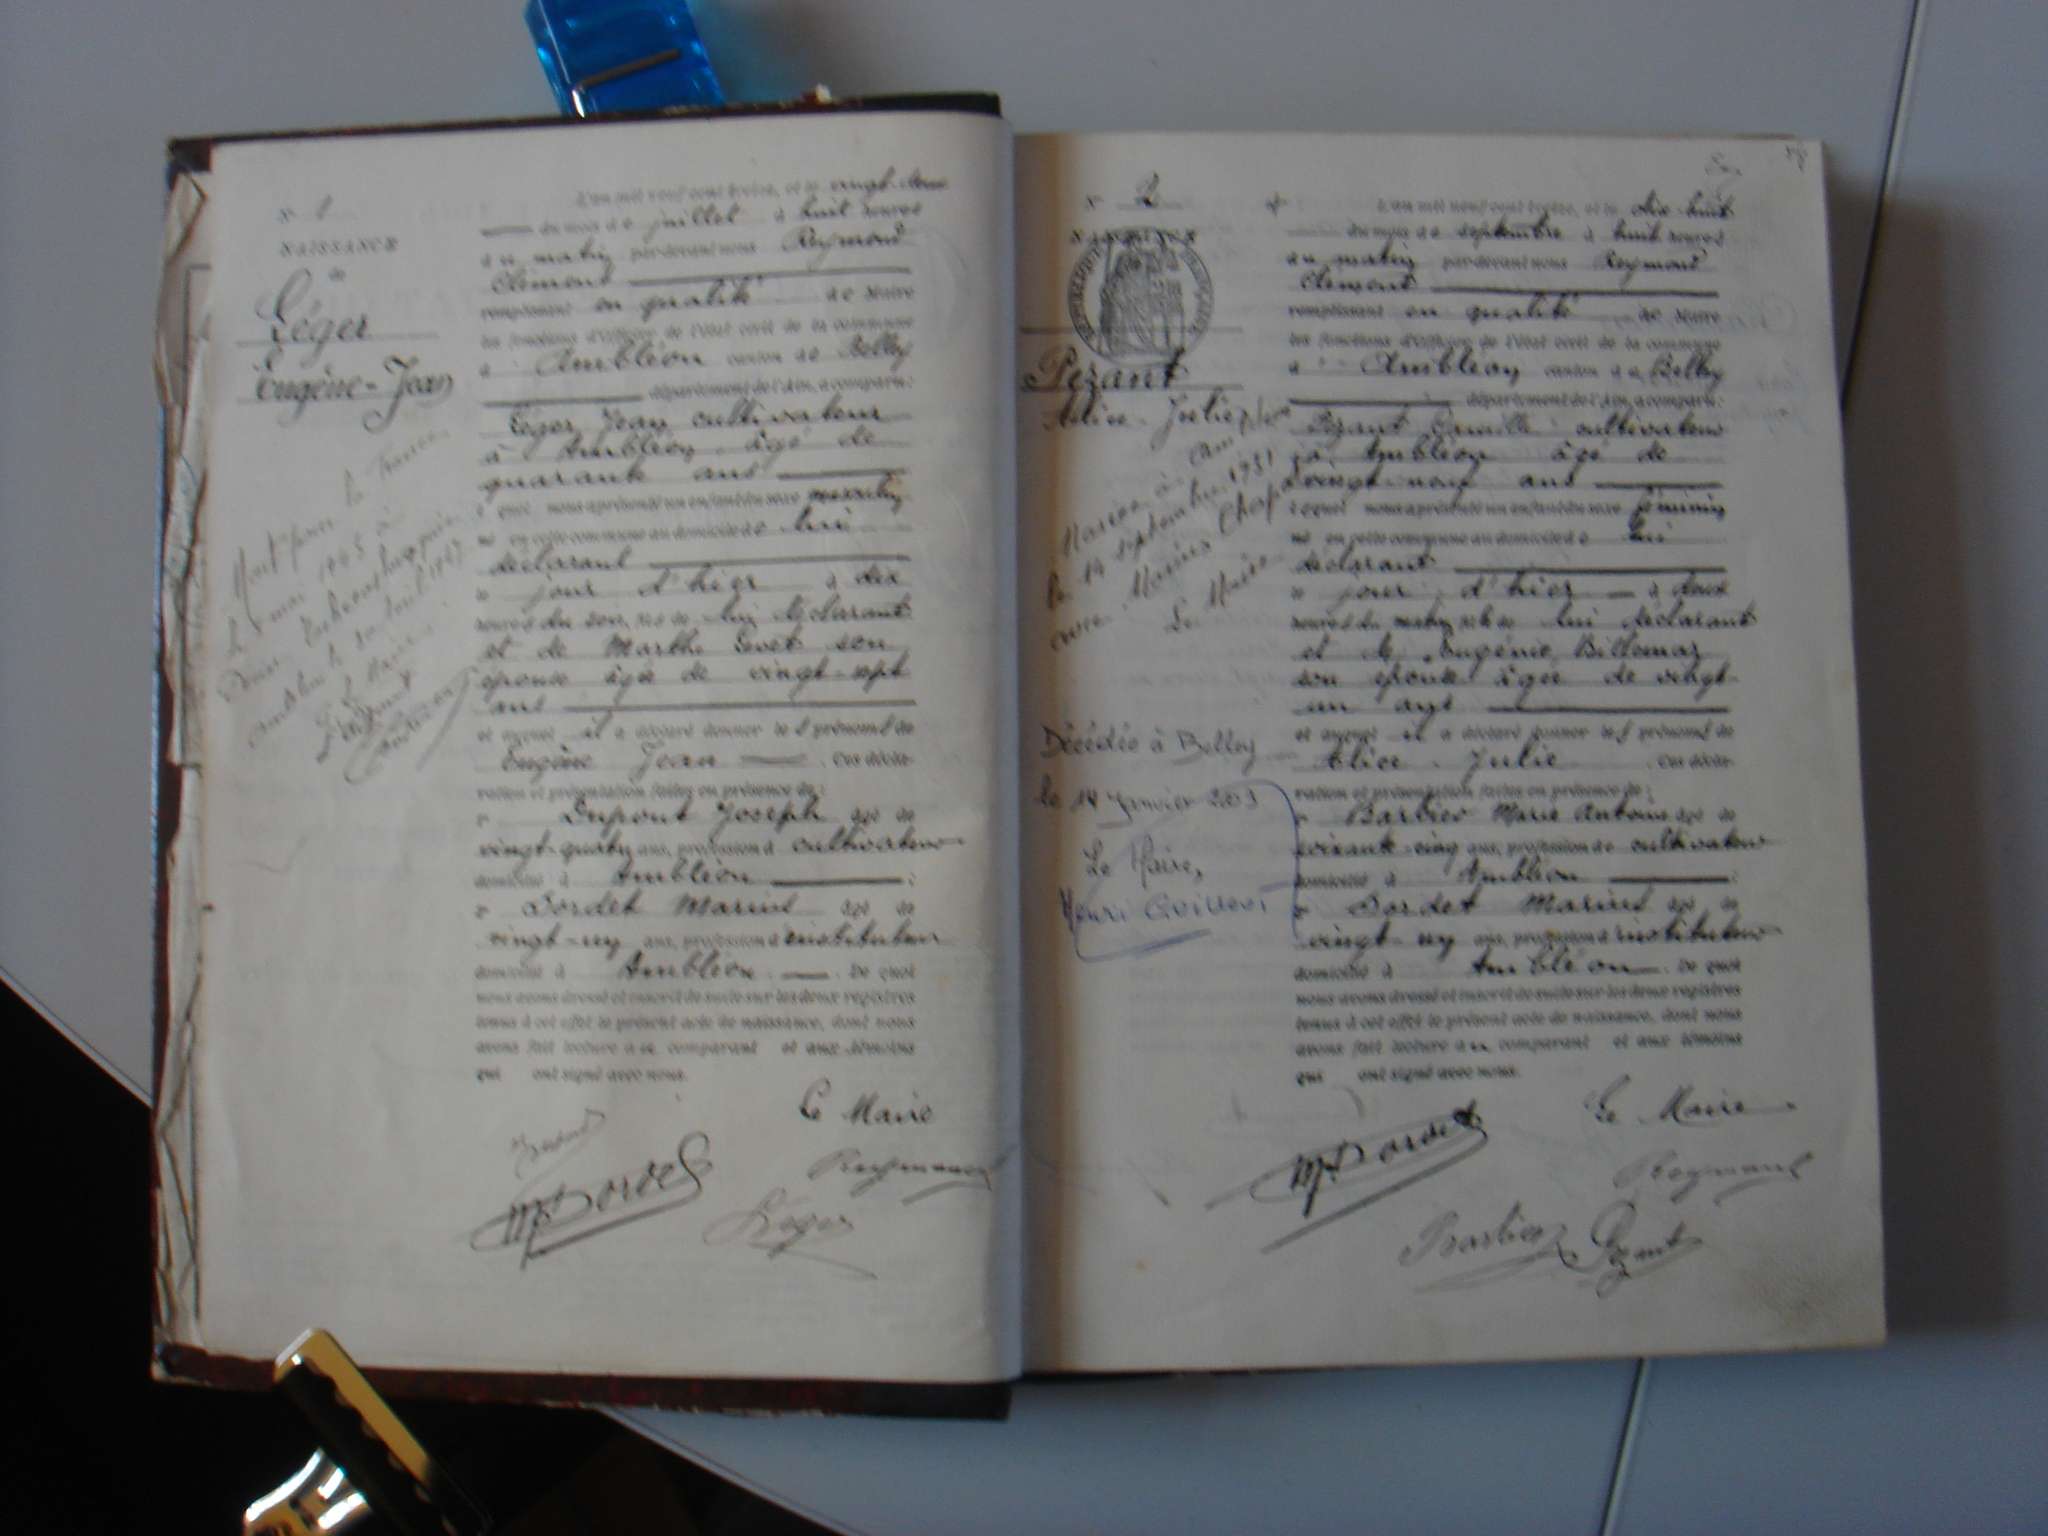 N° 1
NAISSANCE
de
Léger
Eugène-Jean
Mort pour la France
le mai 1945 à
Le Maire
L'an mil neuf cent treize, et le vingt-deux
du mois de juillet à huit heures
du matin par-devant nous Reymond
Clément
remplissant en qualité de Maire
les fonctions d'officier de l'état civil de la commune
d'Ambléon canton de Belley
département de l'Ain, a comparu :
Léger Jean cultivateur
à Ambléon âgé de
quarante ans
lequel nous a présenté un enfant du sexe masculin
né en cette commune au domicile de lui
déclarant
le jour d'hier à dix
heures du soir, fils de lui déclarant
et de Marthe son
épouse âgée de vingt-sept
ans
et auquel il a déclaré donner les prénoms de
Eugène Jean Ces décla-
ration et présentation faites en présence de :
1° Dupont Joseph âgé de
vingt-quatre ans, profession de cultivateur
domicilié à Ambléon ;
2° Bordet Marius âgé de
vingt-un ans, profession d'instituteur
domicilié à Ambléon. De quoi
nous avons dressé et inscrit de suite sur les deux registres
tenus à cet effet le présent acte de naissance, dont nous
avons fait lecture au comparant et aux témoins
qui ont signé avec nous.
Le Maire
Dupont
Reymond
M Bordet
Léger
N° 2
NAISSANCE
Pezant
Alice-Julie
Mariée à
le 14 septembre 1931
avec Marius
Le Maire
Décédée à Belley
le 14 Janvier 2003
Le Maire,
Henri
L'an mil neuf cent treize, et le dix-huit
du mois de septembre à huit heures
du matin par-devant nous Reymond
Clément
remplissant en qualité de Maire
les fonctions d'officier de l'état civil de la commune
d'Ambléon canton de Belley
département de l'Ain, a comparu :
Pezant Camille cultivateur
à Ambléon âgé de
vingt-neuf ans
lequel nous a présenté un enfant du sexe féminin
né en cette commune au domicile de lui
déclarant
le jour d'hier à deux
heures du matin, fille de lui déclarant
et de Eugénie Billemaz
son épouse âgée de vingt-
un ans
et auquel il a déclaré donner les prénoms de
Alice Julie Ces décla-
ration et présentation faites en présence de :
1° Barbier Marie Antoine âgé de
soixante-cinq ans, profession de cultivateur
domicilié à Ambléon ;
2° Bordet Marius âgé de
vingt-un ans, profession d'instituteur
domicilié à Ambléon. De quoi
nous avons dressé et inscrit de suite sur les deux registres
tenus à cet effet le présent acte de naissance, dont nous
avons fait lecture au comparant et aux témoins
qui ont signé avec nous.
Le Maire
M Bordet
Reymond
Barbier Pezant